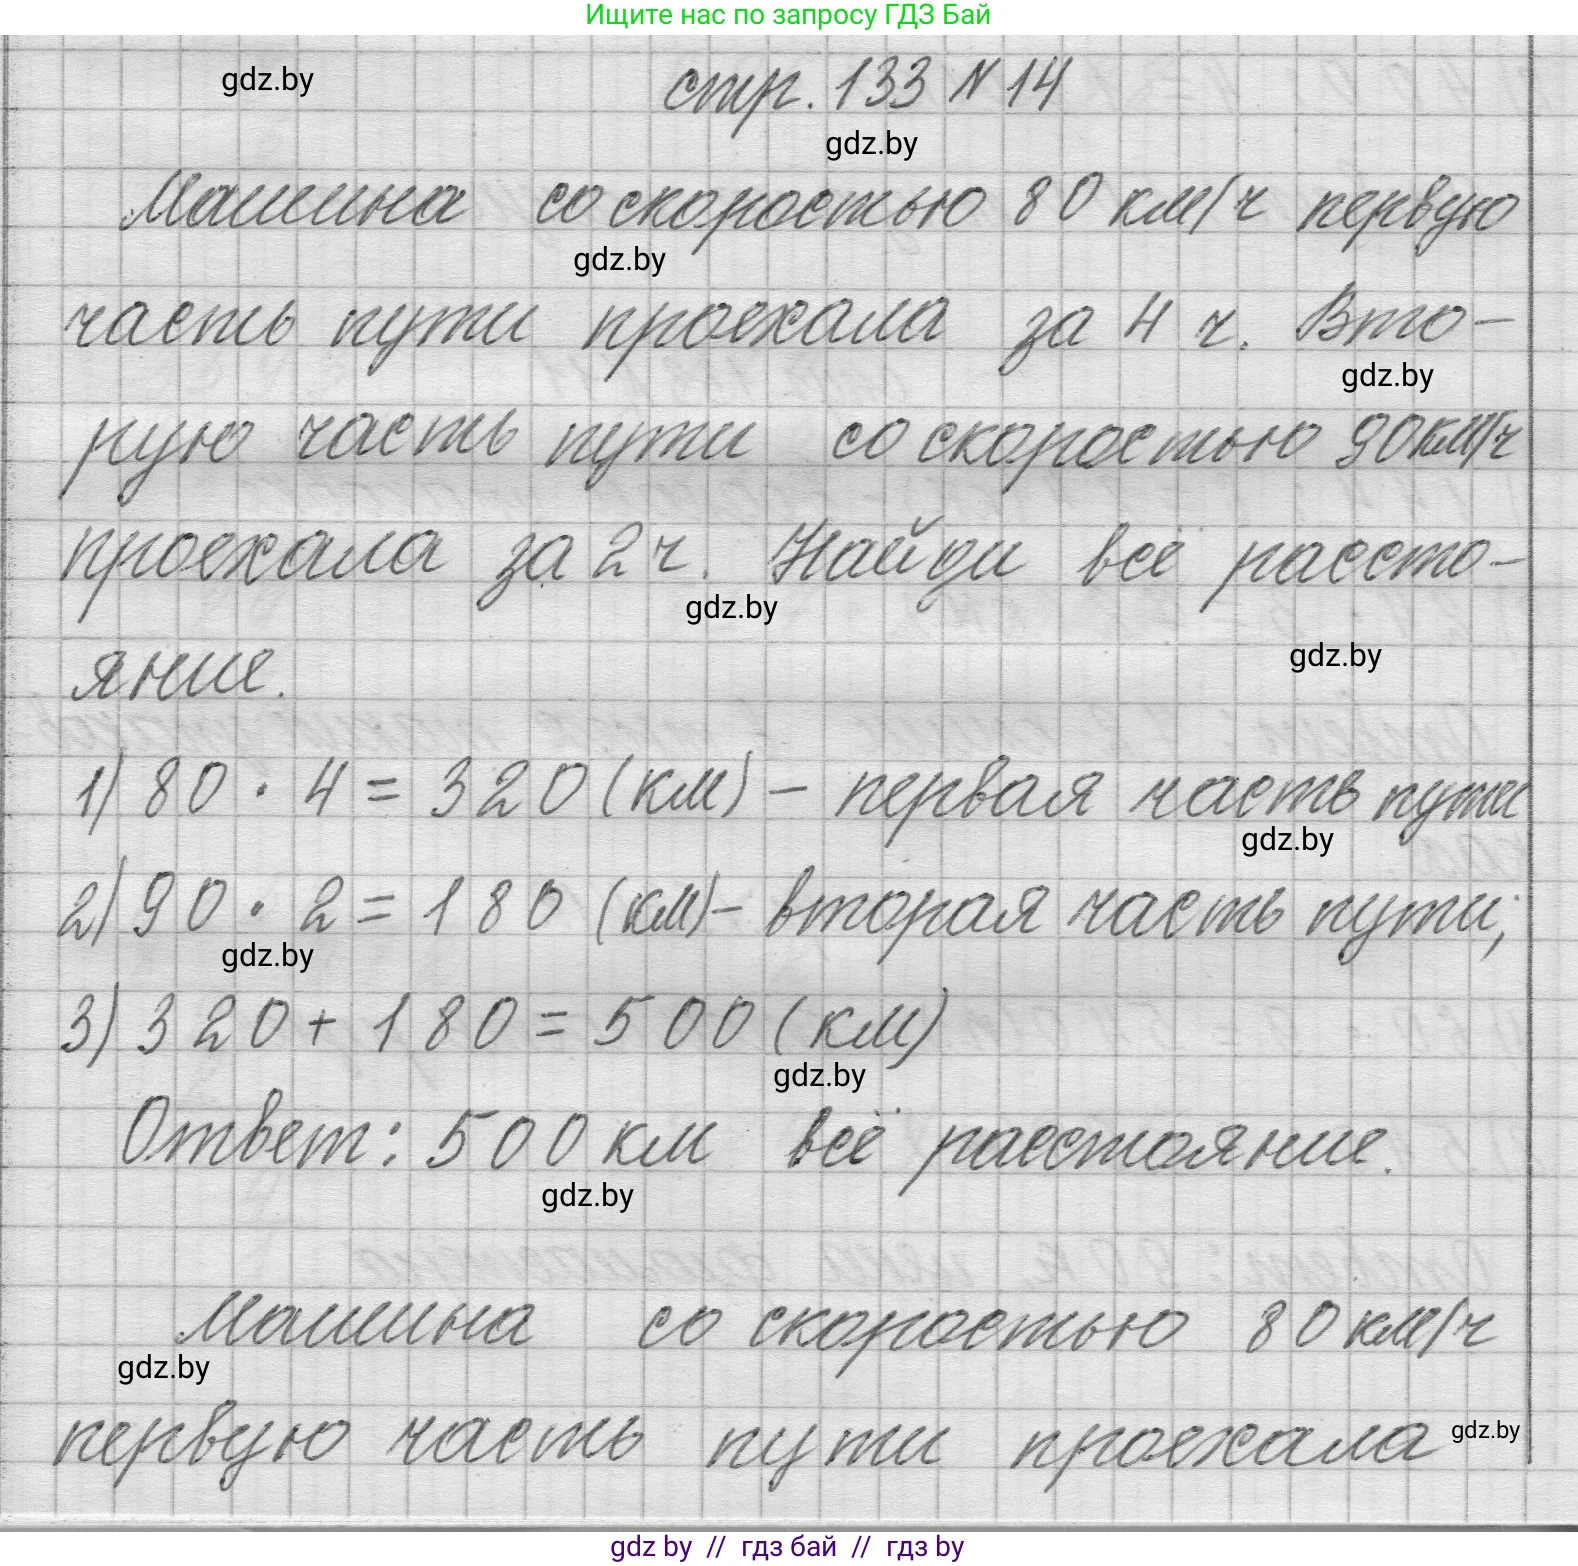 Ищите нас по запросу ГДЗ Бай
gdz.by
стр. 133 N 14
gdz.by
Машина со скоростью 80 км/ч первую
gdz.by
часть пути проехала за 4 ч. Вто-
gdz.by
рую часть пути со скоростью 90км/ч
проехала за 2 ч. Найди всё рассто-
gdz.by
gdz.by
яние.
1) 80 · 4 = 320 (км) - первая часть пути
gdz.by
2) 90 · 2 = 180 (км) - вторая часть пути;
gdz.by
3) 320 + 180 = 500 (км)
gdz.by
Ответ: 500 км всё расстояние.
gdz.by
Машина со скоростью 80 км/ч
gdz.by
первую часть пути проехала
gdz.by
gdz by // гдз бай // gdz by